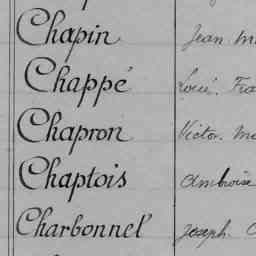 Chapin Jean
Chappé Louis
Chapron Victor
Chaptois Ambroise
Charbonnel Joseph